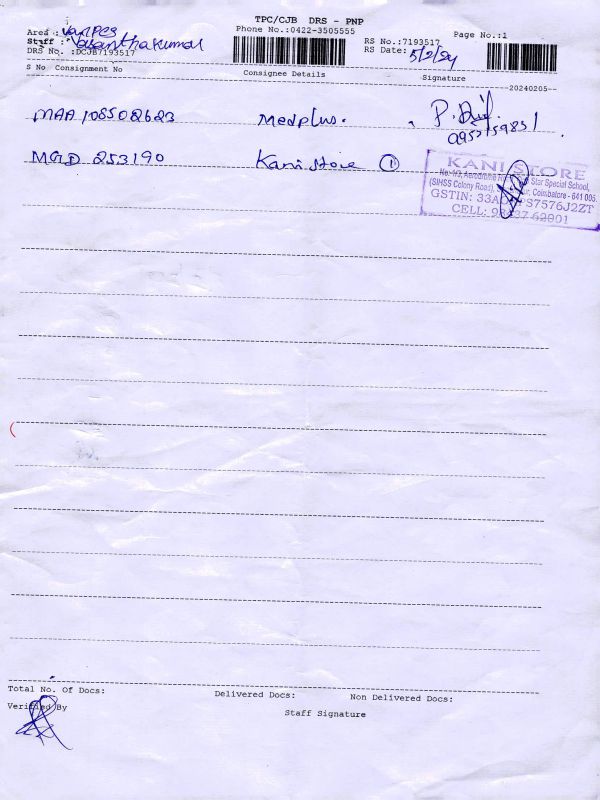 TPC/CJB DRS - PNP
Area :
Phone No.:0422-3505555
Page No.:1
Staff :
RS No.:7193517
DRS No. :DCJB7193517
RS Date: 5/2/24
S No Consignment No Consignee Details Signature
20240205
MAA 108502623 Medplus.
MGD 253190 Kani store ①
KANI STORE
Star Special School,
(SIHSS Colony Road), Coimbatore - 641 005.
GSTIN: 33A S7576J2ZT
CELL: 62901
Total No. Of Docs: Delivered Docs: Non Delivered Docs:
Verified By
Staff Signature